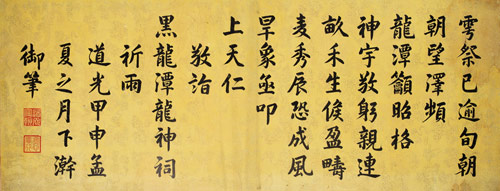 雩祭已逾旬朝
朝望澤頻
龍潭籲昭格
神字敬躬親連
畝禾生俟盈疇
麦秀辰恐成風
旱象亟叩
上天仁
敬詣
黑龍潭龍神祠
祈雨
道光甲申孟
夏之月下澣
御筆